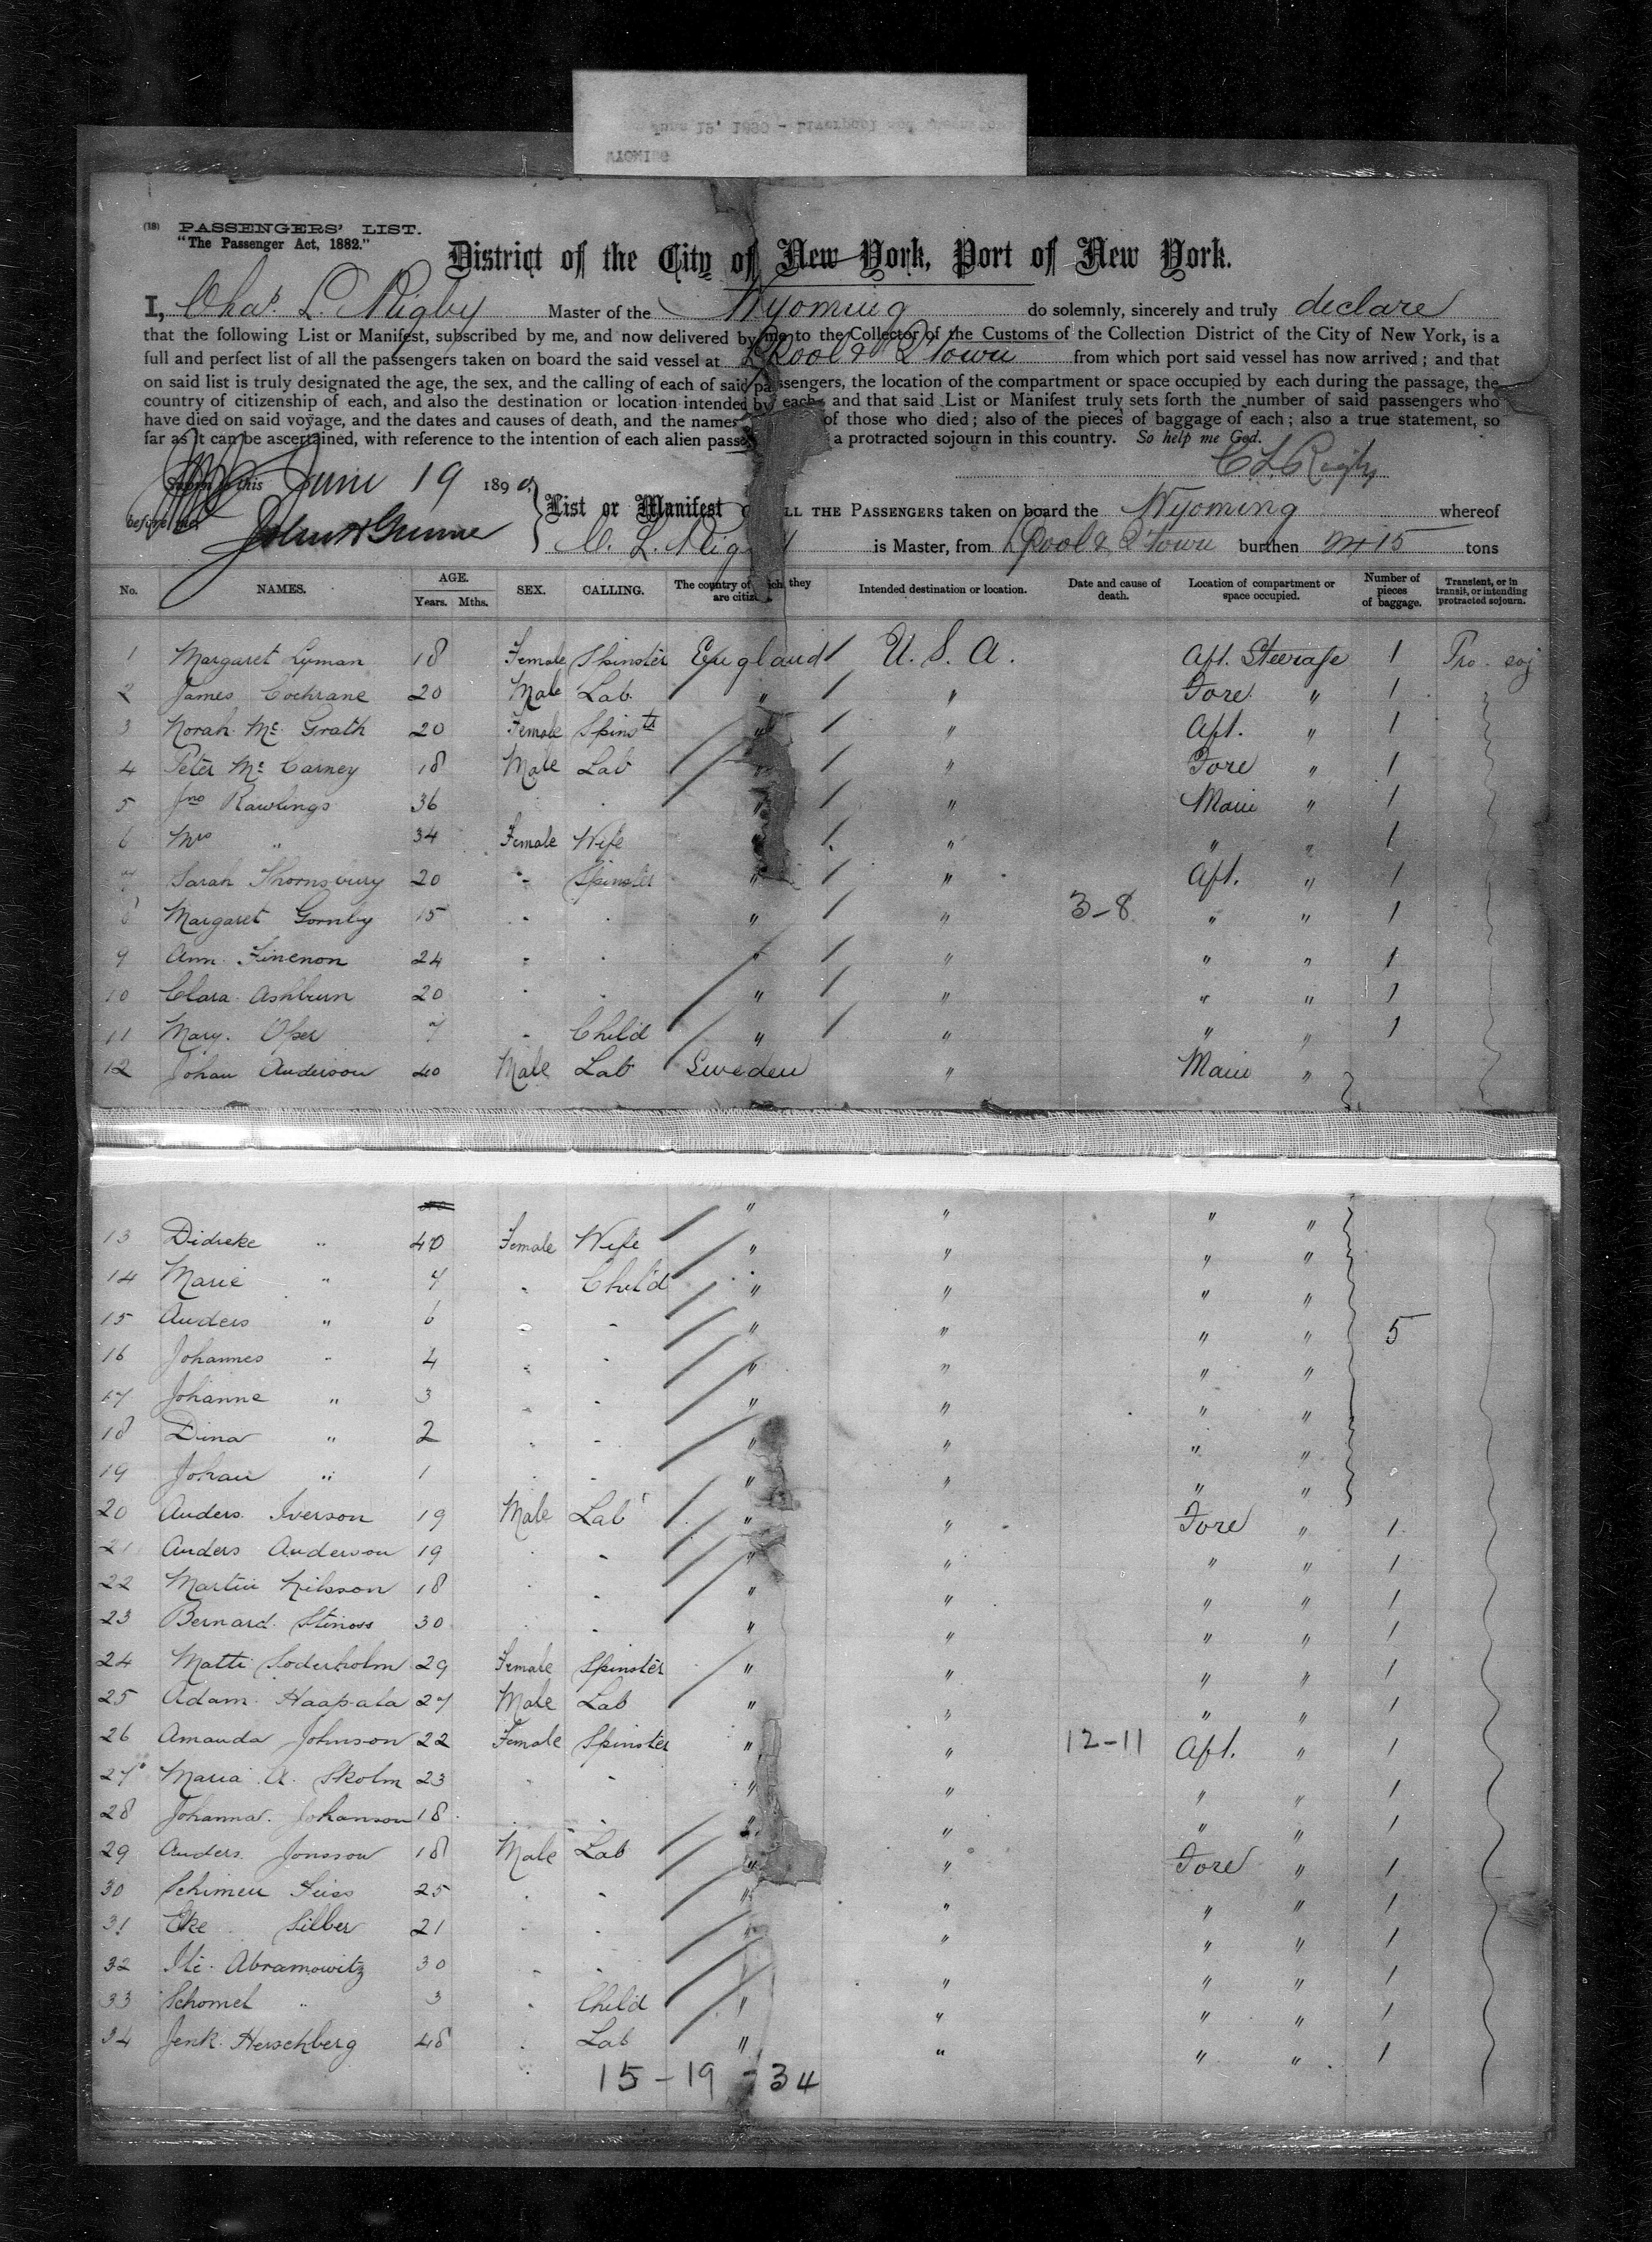 WYOMING
(18) PASSENGERS' LIST.
"The Passenger Act, 1882."
District of the City of New York, Port of New York.
I, Chas. L. Rigby Master of the Wyoming do solemnly, sincerely and truly declare
that the following List or Manifest, subscribed by me, and now delivered by me to the Collector of the Customs of the Collection District of the City of New York, is a
full and perfect list of all the passengers taken on board the said vessel at L'Pool & Q Town from which port said vessel has now arrived; and that
on said list is truly designated the age, the sex, and the calling of each of said passengers, the location of the compartment or space occupied by each during the passage, the
country of citizenship of each, and also the destination or location intended by each, and that said List or Manifest truly sets forth the number of said passengers who
have died on said voyage, and the dates and causes of death, and the names of those who died; also of the pieces of baggage of each; also a true statement, so
far as it can be ascertained, with reference to the intention of each alien a protracted sojourn in this country. So help me God.
C L Rigby
Sworn to this June 19 1890
before me
List or Manifest ALL THE PASSENGERS taken on board the Wyoming whereof
C. L. Rigby is Master, from L'Pool & Q Town burthen tons
No. NAMES. AGE. Years. Mths. SEX. CALLING. The country of which they are citizens. Intended destination or location. Date and cause of death. Location of compartment or space occupied. Number of pieces of baggage. Transient, or in transit, or intending protracted sojourn.
1 Margaret Lyman 18 Female Spinster England / U. S. A. Aft. Steerage 1 Pro. soj
2 James Cochrane 20 Male Lab. " / " Fore " 1
3 Norah Mc Grath 20 Female Spinstr " / " Aft. " 1
4 Peter Mc Carney 18 Male Lab " / " Fore " 1
5 Jno Rawlings 36 " / " Main " 1
6 Mrs " 34 Female Wife " / " " " 1
7 Sarah Thornsbury 20 " Spinster " / " Aft. " 1
8 Margaret Gornby 15 " " " / " 3-8 " " 1
9 Ann Finenon 24 " " " / " " " 1
10 Clara Ashburn 20 " " " / " " " 1
11 Mary Oper 7 " Child " / " " " 1
12 Johan Anderson 40 Male Lab Sweden " Main "
13 Didreke " 40 Female Wife " " " "
14 Marie " 7 " Child " " " "
15 Anders " 6 " " " " " " 5
16 Johannes " 4 " " " " " "
17 Johanne " 3 " " " " " "
18 Dina " 2 " " " " " "
19 Johan " 1 " " " " " "
20 Anders Iverson 19 Male Lab " " Fore " 1
21 Anders Anderson 19 " " " " " " 1
22 Martin Nilsson 18 " " " " " " 1
23 Bernard Stinoss 30 " " " " " " 1
24 Matti Soderholm 29 Female Spinster " " " " 1
25 Adam Haapala 27 Male Lab " " " " 1
26 Amanda Johnson 22 Female Spinster " " 12-11 Aft. " 1
27 Maria A. Skolm 23 " " " " " " 1
28 Johanna Johanson 18 " " " " " " 1
29 Anders Jonsson 18 Male Lab " " Fore " 1
30 Schimen Feiss 25 " " " " " " 1
31 Eke Silber 21 " " " " " " 1
32 Iti Abramowitz 30 " " " " " " 1
33 Schomel " 3 " Child " " " " 1
34 Jenk Herschberg 48 " Lab " " " " 1
15 - 19 - 34